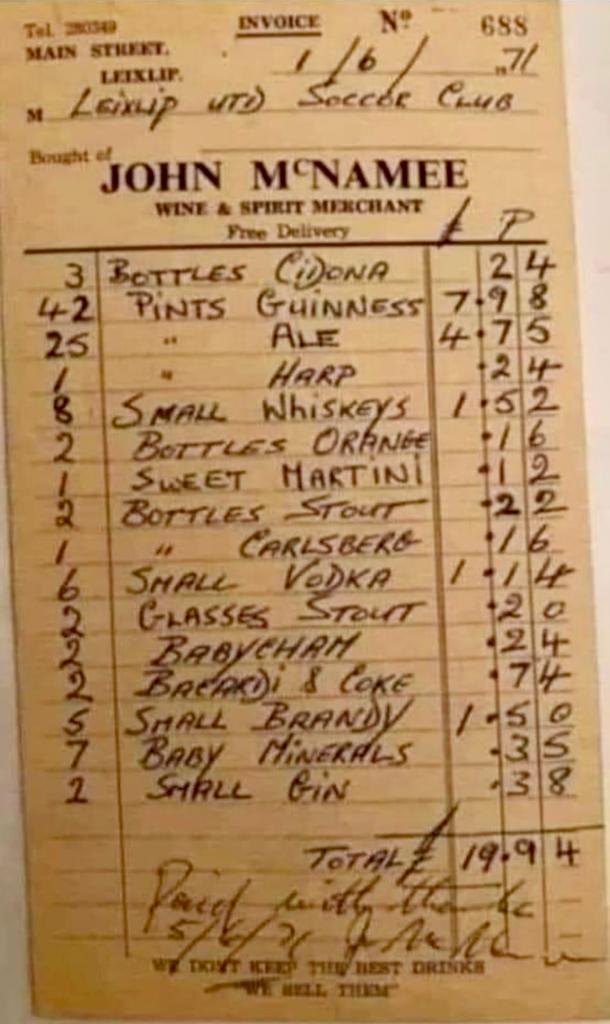 Tel. 280349 INVOICE Nº 688
MAIN STREET.
LEIXLIP. 1/6/1971
M Leixlip UTD Soccer Club
Bought of
JOHN McNAMEE
WINE & SPIRIT MERCHANT
Free Delivery £ P
3 BOTTLES CIDONA 24
42 PINTS GUINNESS 7.98
25 " ALE 4.75
1 " HARP .24
8 SMALL WHISKEYS 1.52
2 BOTTLES ORANGE .16
1 SWEET MARTINI .12
2 BOTTLES STOUT .22
1 " CARLSBERG .16
6 SMALL VODKA 1.14
2 GLASSES STOUT .20
2 BABYCHAM .24
2 BACARDI & COKE .74
5 SMALL BRANDY 1.50
7 BABY MINERALS .35
2 SMALL GIN .38
£
TOTAL £ 19.94
Paid with thanks
5/6/71
WE DON'T KEEP THE BEST DRINKS
"WE SELL THEM"